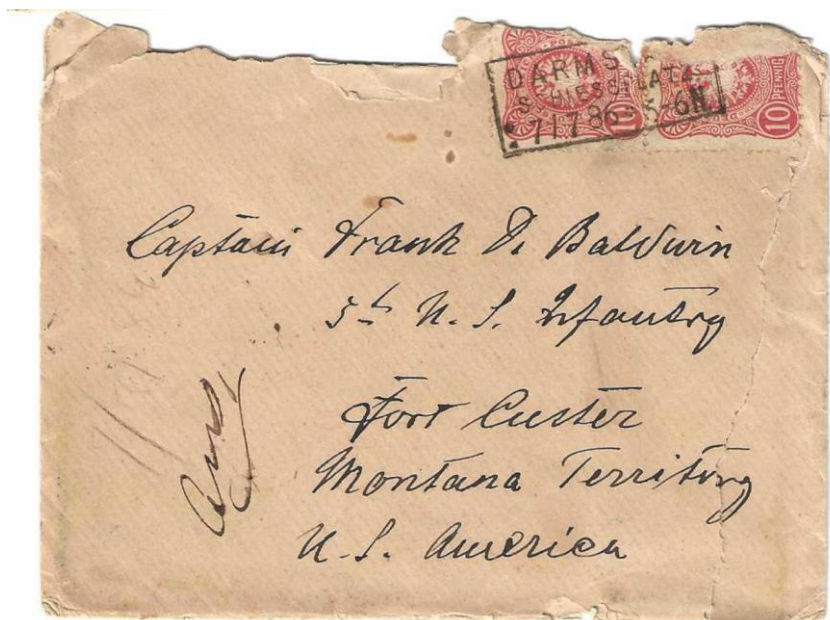 DARMST
SCHIESSPLATZ
7 1 7 86 5-6N
10 PFENNIG
10
Captain Frank D. Baldwin
5th U. S. Infantry
Fort Custer
Montana Territory
U. S. America
Ans,